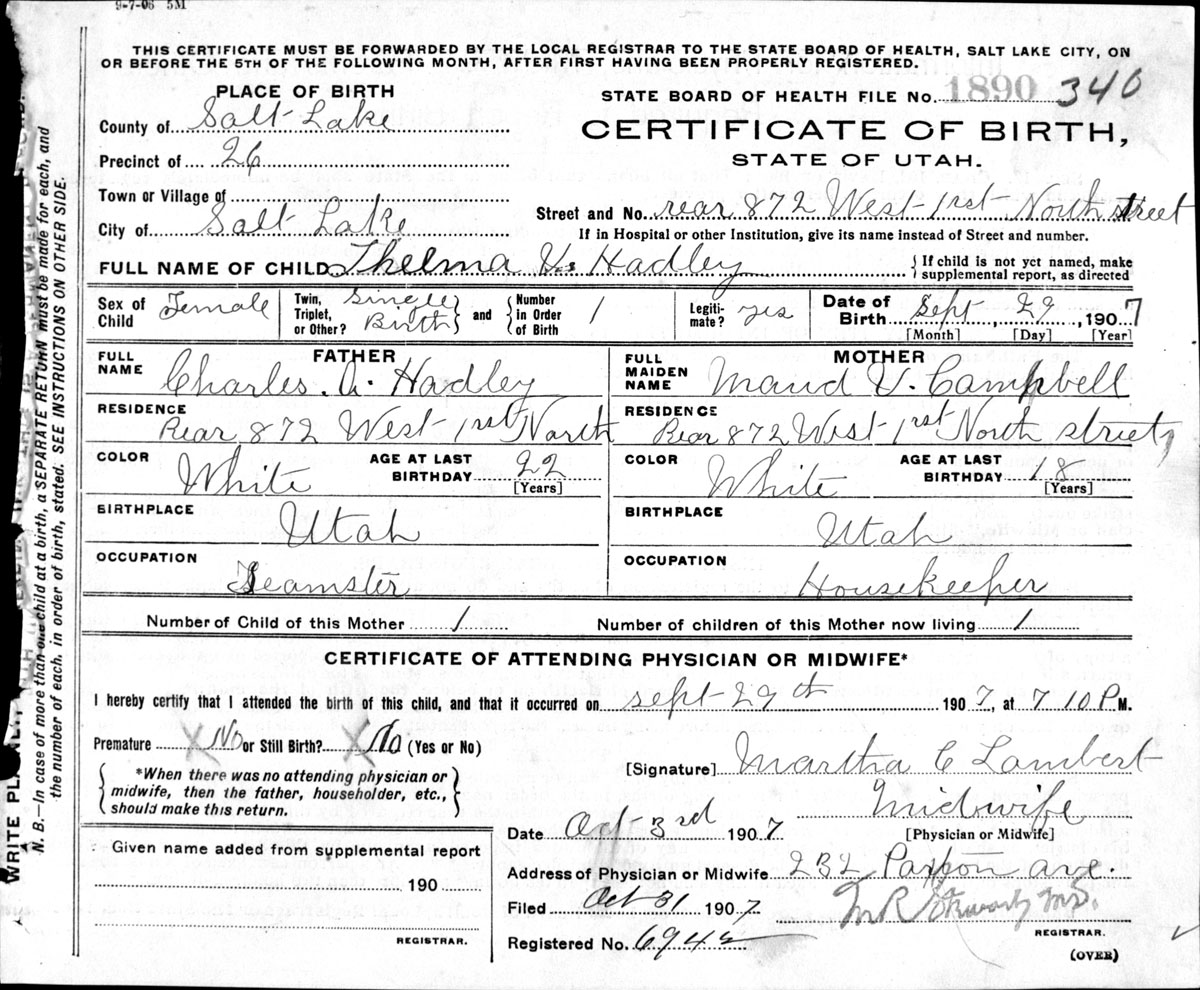 9-7-06 5M
THIS CERTIFICATE MUST BE FORWARDED BY THE LOCAL REGISTRAR TO THE STATE BOARD OF HEALTH, SALT LAKE CITY, ON
OR BEFORE THE 5TH OF THE FOLLOWING MONTH, AFTER FIRST HAVING BEEN PROPERLY REGISTERED.
PLACE OF BIRTH
STATE BOARD OF HEALTH FILE No. 1890 340
County of Salt Lake
CERTIFICATE OF BIRTH,
Precinct of 26
STATE OF UTAH.
Town or Village of
City of Salt Lake
Street and No. rear 872 West 1rst North street
If in Hospital or other Institution, give its name instead of Street and number.
FULL NAME OF CHILD Thelma V. Hadley
{If child is not yet named, make
supplemental report, as directed
Sex of Child Female
Twin, Triplet, or Other? Single Birth
and
Number in Order of Birth 1
Legiti-mate? yes
Date of Birth Sept 29, 1907
[Month] [Day] [Year]
FATHER
FULL NAME Charles. A. Hadley
MOTHER
FULL MAIDEN NAME Maud V. Campbell
RESIDENCE
Rear 872 West 1rst North
RESIDENCE
Rear 872 West 1rst North street
COLOR White
AGE AT LAST BIRTHDAY 22
[Years]
COLOR White
AGE AT LAST BIRTHDAY 18
[Years]
BIRTHPLACE
Utah
BIRTHPLACE
Utah
OCCUPATION
Teamster
OCCUPATION
Housekeeper
Number of Child of this Mother 1
Number of children of this Mother now living 1
CERTIFICATE OF ATTENDING PHYSICIAN OR MIDWIFE*
I hereby certify that I attended the birth of this child, and that it occurred on sept 29th 1907, at 7 10 P M.
Premature X No or Still Birth? X No (Yes or No)
*When there was no attending physician or
midwife, then the father, householder, etc.,
should make this return.
[Signature] Martha C Lambert
Midwife
[Physician or Midwife]
Date Oct 3rd 1907
Given name added from supplemental report
190
REGISTRAR.
Address of Physician or Midwife 232 Paxton ave.
Filed Oct 31 1907
REGISTRAR.
Registered No.
(OVER)
WRITE PLAINLY
N. B.—In case of more than one child at a birth, a SEPARATE RETURN must be made for each, and
the number of each, in order of birth, stated. SEE INSTRUCTIONS ON OTHER SIDE.